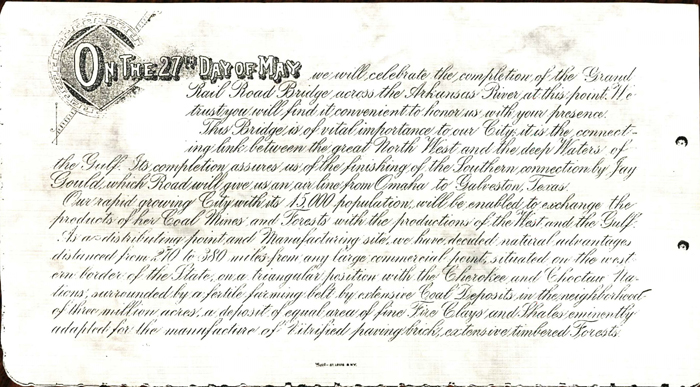 ON THE 27TH DAY OF MAY we will celebrate the completion of the Grand
Rail Road Bridge across the Arkansas River at this point. We
trust you will find it convenient to honor us with your presence.
This Bridge is of vital importance to our City, it is the connect-
ing link between the great North West and the deep Waters of
the Gulf. Its completion assures us of the finishing of the Southern connection by Jay
Gould, which Road will give us an air line from Omaha to Galveston, Texas.
Our rapid growing City with its 15,000 population, will be enabled to exchange the
products of her Coal Mines and Forests with the productions of the West and the Gulf.
As a distributing point and Manufacturing site, we have decided natural advantages
distanced from 270 to 380 miles from any large commercial point, situated on the west
ern border of the State, on a triangular position with the Cherokee and Choctaw Na-
tions, surrounded by a fertile farming belt by extensive Coal Deposits in the neighborhood
of three million acres, a deposit of equal area of fine Fire Clays and Shales eminently
adapted for the manufacture of Vitrified paving brick, extensive timbered Forests.